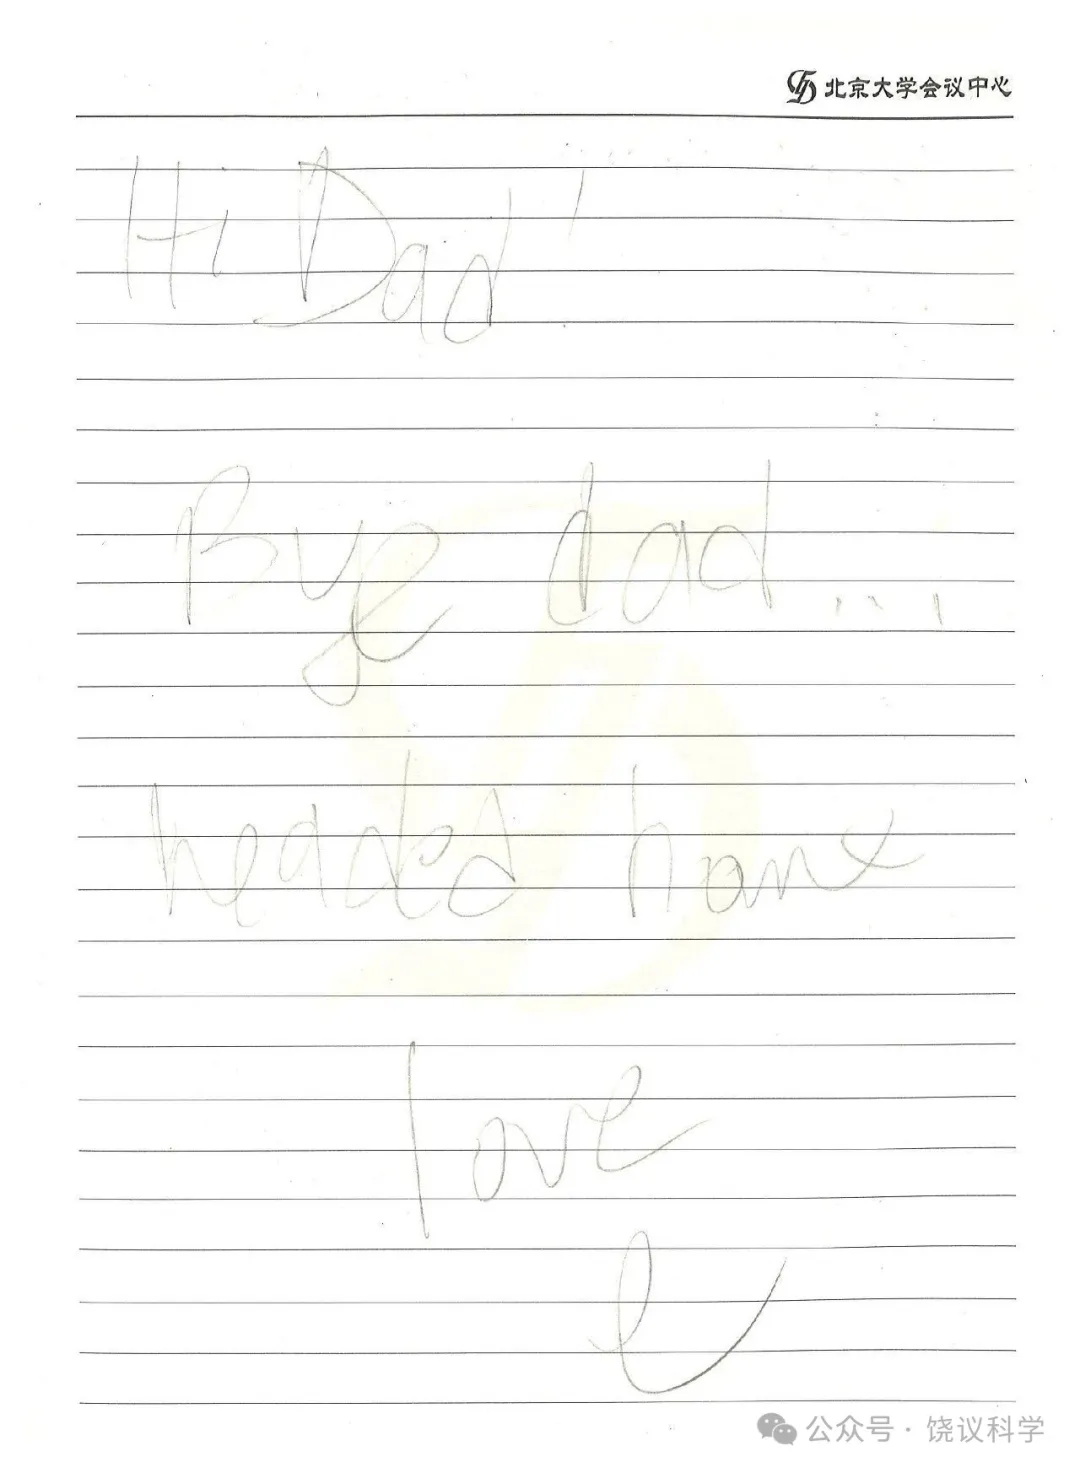 北京大学会议中心
Hi Dad!
Bye dad...
headed home
love
e
公众号·饶议科学